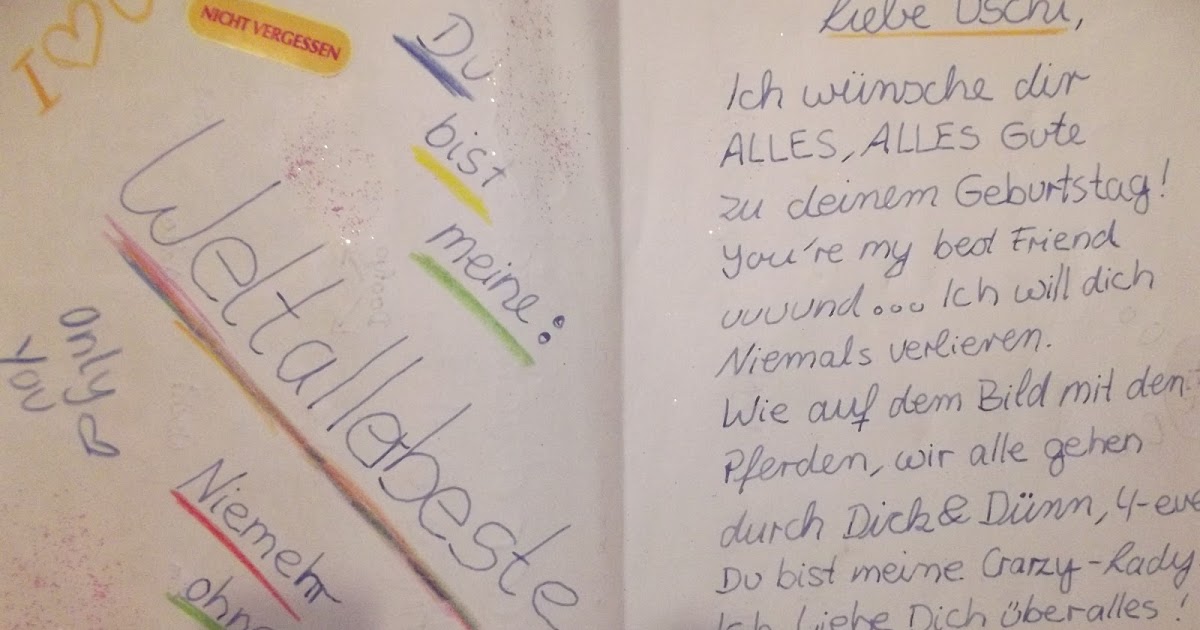 I ♡ U
NICHT VERGESSEN
Du
bist
meine:
Weltallerbeste
Only
You
Niemehr
ohne
Liebe Uschi,
Ich wünsche dir
ALLES, ALLES Gute
zu deinem Geburtstag!
You're my best Friend
uuuund... Ich will dich
Niemals verlieren.
Wie auf dem Bild mit den
Pferden, wir alle gehen
durch Dick & Dünn, 4-eve
Du bist meine Crarzy-Lady
Ich Liebe Dich überalles!